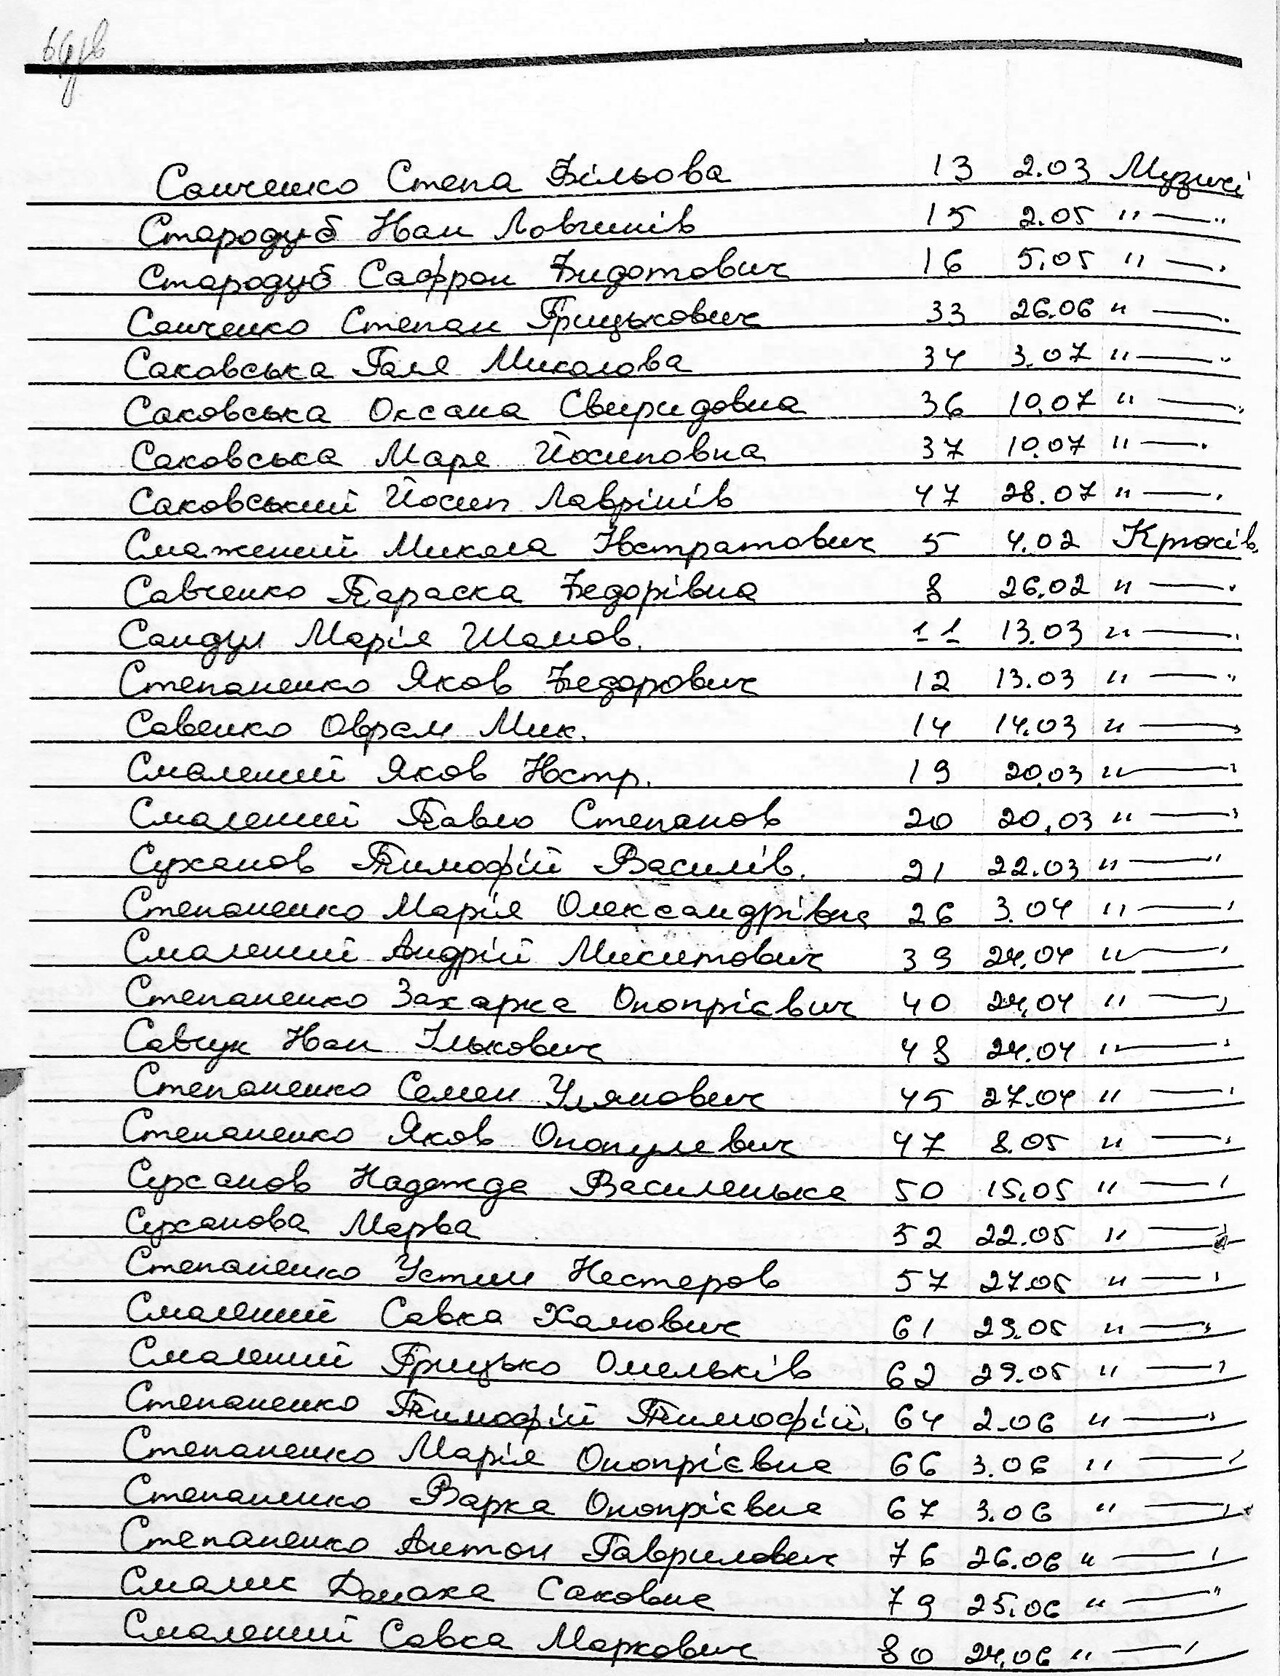 Санченко Степа Більова 13 2.03 Музичі
Стародуб Іван Ловчинів 15 2.05 " — "
Стародуб Сафрон Федотович 16 5.05 " — "
Санченко Степан Грицькович 33 26.06 " — "
Саковська Галя Миколова 34 3.07 " — "
Саковська Оксана Свиридовна 36 10.07 " — "
Саковська Маре Йосиповна 37 10.07 " — "
Саковський Йосип Лаврінів 47 28.07 " — "
Смажений Микола Івстратович 5 4.02 Крюків.
Савченко Параска Федорівна 8 26.02 " — "
Сандул Марія Шамов. 11 13.03 " — "
Степаненко Яков Федорович 12 13.03 " — "
Савенко Оврам Мик. 14 14.03 " — "
Смалений Яков Івстр. 19 20.03 " — "
Смалений Павло Степанов 20 20.03 " — "
Суханов Тимофій Василів. 21 22.03 " — "
Степаненко Марія Олександрівна 26 3.04 " — "
Смалений Андрій Микитович 39 24.04 " — "
Степаненко Захарка Онопрієвич 40 24.04 " — "
Савчук Іван Ількович 48 24.04 " — "
Степаненко Семен Улянович 45 27.04 " — "
Степаненко Яков Онопулевич 47 8.05 " — "
Суханов Надежда Василенька 50 15.05 " — "
Суханова Марва 52 22.05 " — "
Степаненко Устин Нестеров 57 27.05 " — "
Смалений Савка Хамович 61 29.05 " — "
Смалений Грицько Омельків 62 29.05 " — "
Степаненко Тимофій Тимофій. 64 2.06 " — "
Степаненко Марія Онопрієвна 66 3.06 " — "
Степаненко Варка Онопрієвна 67 3.06 " — "
Степаненко Антон Гаврилович 76 26.06 " — "
Смалис Донака Саковна 79 25.06 " — "
Смалений Савка Маркович 80 24.06 " — "